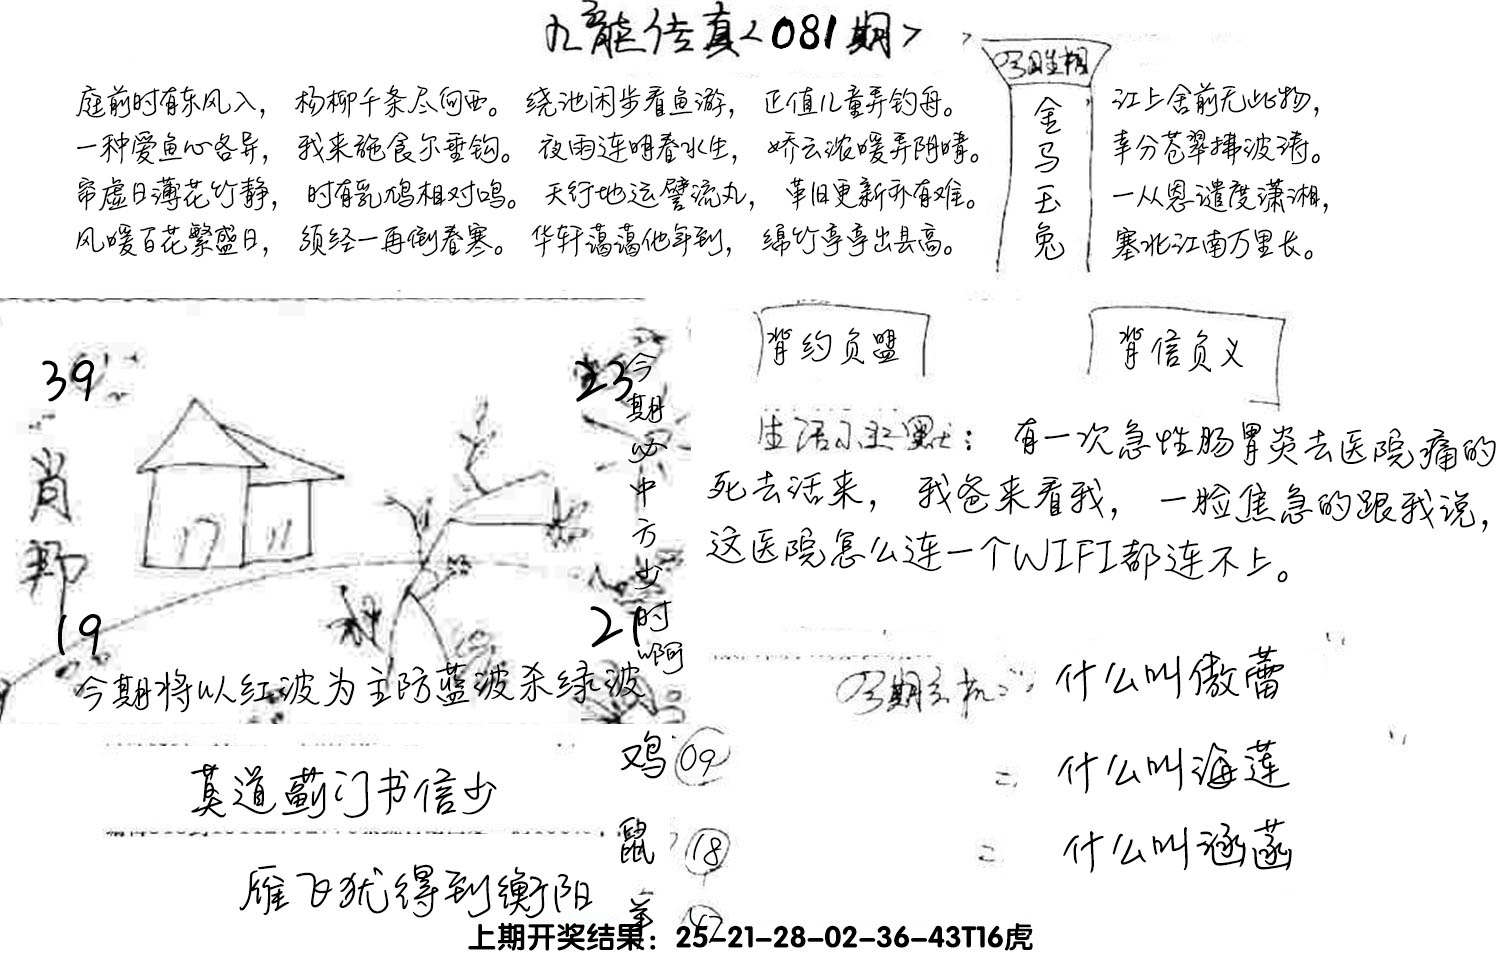 九龍传真<081期>
庭前时有东风入， 杨柳千条尽向西。 绕池闲步看鱼游， 正值儿童弄钓舟。
一种爱鱼心各异， 我来施食尔垂钩。 夜雨连明春水生， 娇云浓暖弄阴晴。
帘虚日薄花竹静， 时有乳鸠相对鸣。 天行地运譬流丸， 革旧更新亦有难。
风暖百花繁盛日， 须经一再倒春寒。 华轩蔼蔼他年到， 绵竹亭亭出县高。
金马玉兔
江上舍前无此物，
幸分苍翠拂波涛。
一从恩谴度潇湘，
塞北江南万里长。
背约负盟
背信负义
39
23
肖
19
21
今期必中方少时啊
今期将以红波为主防蓝波杀绿波
生活小幽默： 有一次急性肠胃炎去医院痛的
死去活来， 我爸来看我， 一脸焦急的跟我说，
这医院怎么连一个WIFI都连不上。
什么叫傲蕾
二 什么叫海莲
二 什么叫涵菡
莫道蓟门书信少
雁飞犹得到衡阳
鸡 09
鼠 18
羊 42
上期开奖结果：25-21-28-02-36-43T16虎